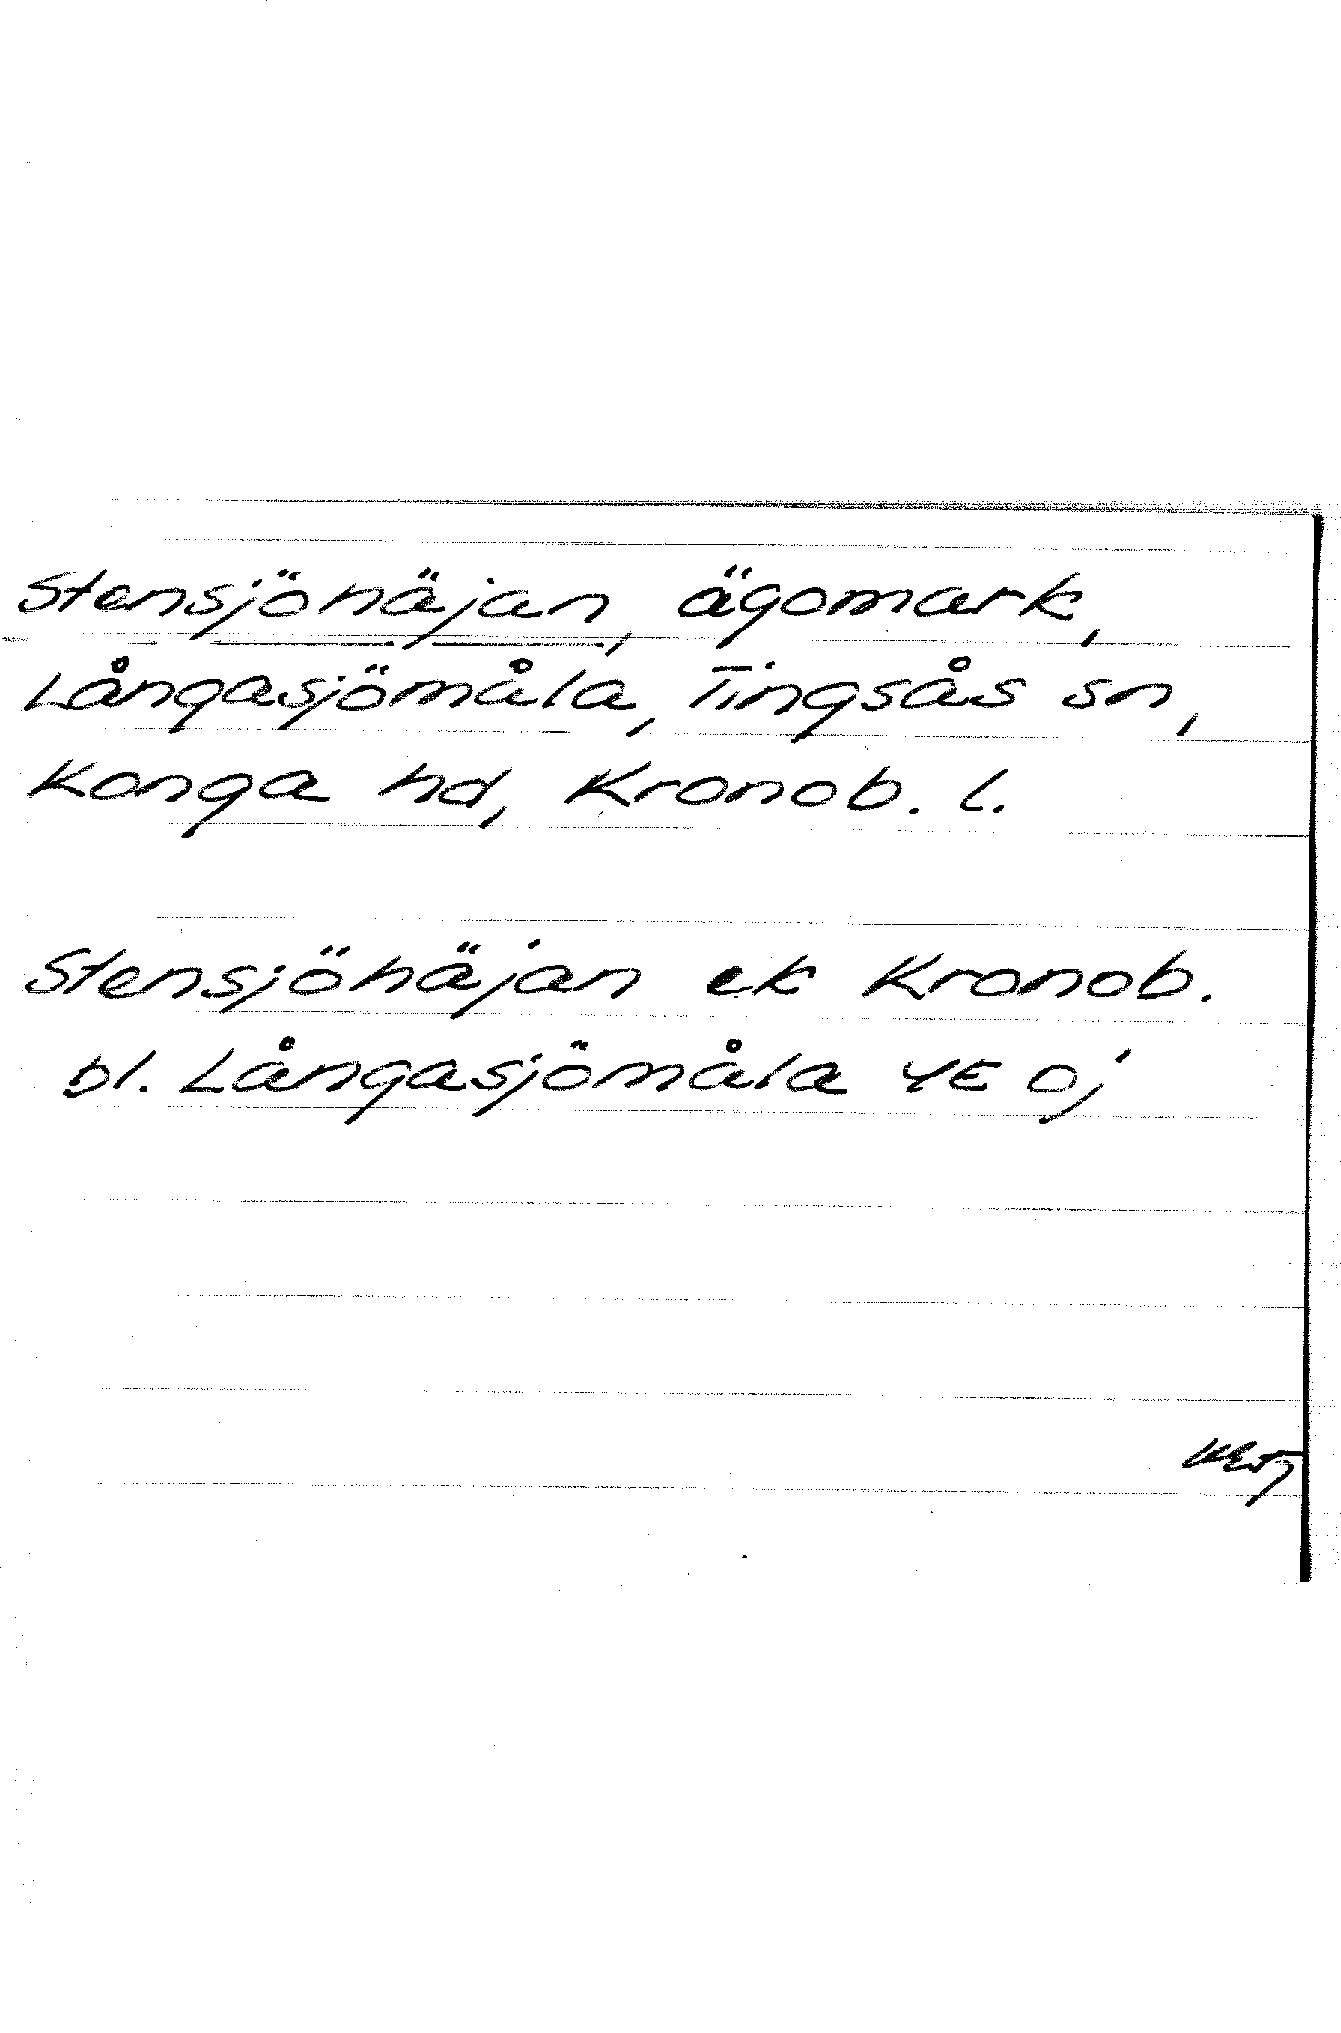 Stensjöhäjan, ägomark,
Långasjömåla, Tingsås sn,
Konga hd, Kronob. l.
Stensjöhäjan ek Kronob.
bl. Långasjömåla 4E 0j